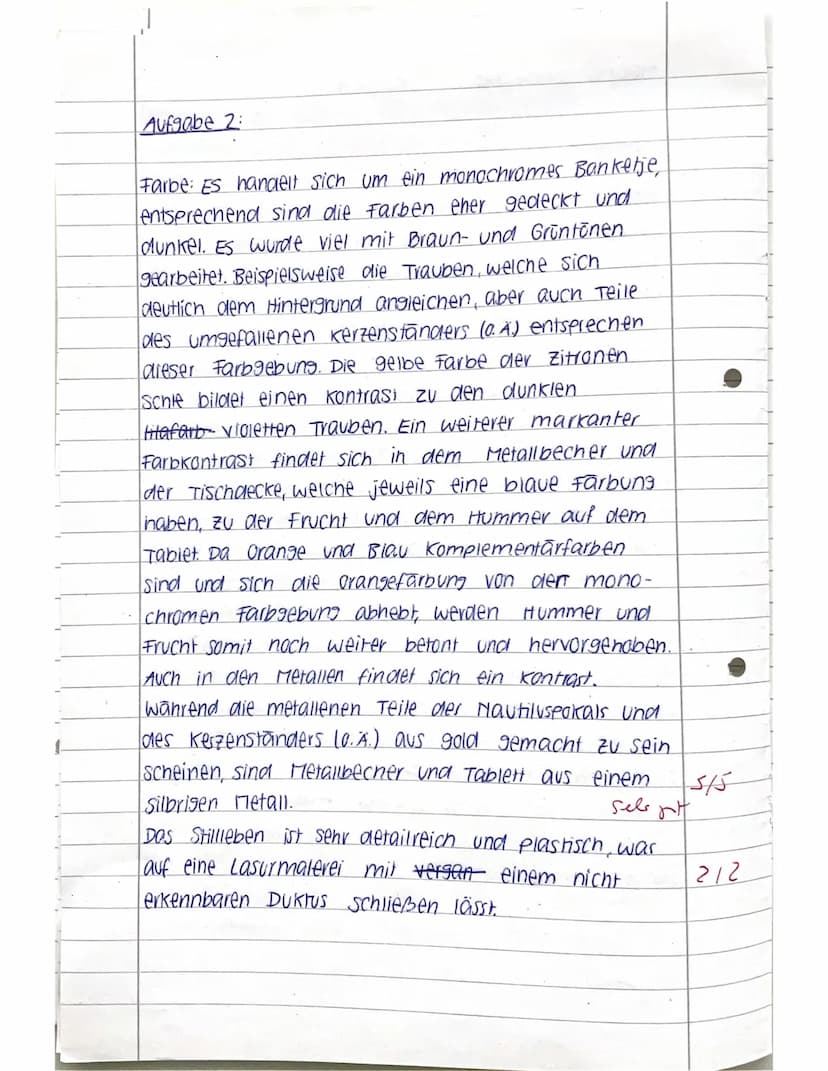 Aufgabe 2:
Farbe: Es handelt sich um ein monochromes Banketje,
entsprechend sind die Farben eher gedeckt und
dunkel. Es wurde viel mit Braun- und Grüntönen
gearbeitet. Beispielsweise die Trauben, welche sich
deutlich dem Hintergrund angleichen, aber auch Teile
des umgefallenen Kerzenständers (o.Ä) entsprechen
dieser Farbgebung. Die gelbe Farbe der Zitronen
schle bildet einen Kontrast zu den dunklen
lilafarb violetten Trauben. Ein weiterer markanter
Farbkontrast findet sich in dem Metallbecher und
der Tischdecke, welche jeweils eine blaue Färbung
haben, zu der Frucht und dem Hummer auf dem
Tablet. Da Orange und Blau Komplementärfarben
sind und sich die Orangefärbung von der mono-
chromen Farbgebung abhebt, werden Hummer und
Frucht somit noch weiter betont und hervorgehoben.
Auch in den Metallen findet sich ein Kontrast.
Während die metallenen Teile des Nautiluspokals und
des Kerzenständers (o.Ä.) aus gold gemacht zu sein
scheinen, sind Metallbecher und Tablett aus einem 5/5
silbrigen Metall. Sehr gut
Das Stillleben ist sehr detailreich und plastisch, was
auf eine Lasurmalerei mit vergan einem nicht 2/2
erkennbaren Duktus schließen lässt.